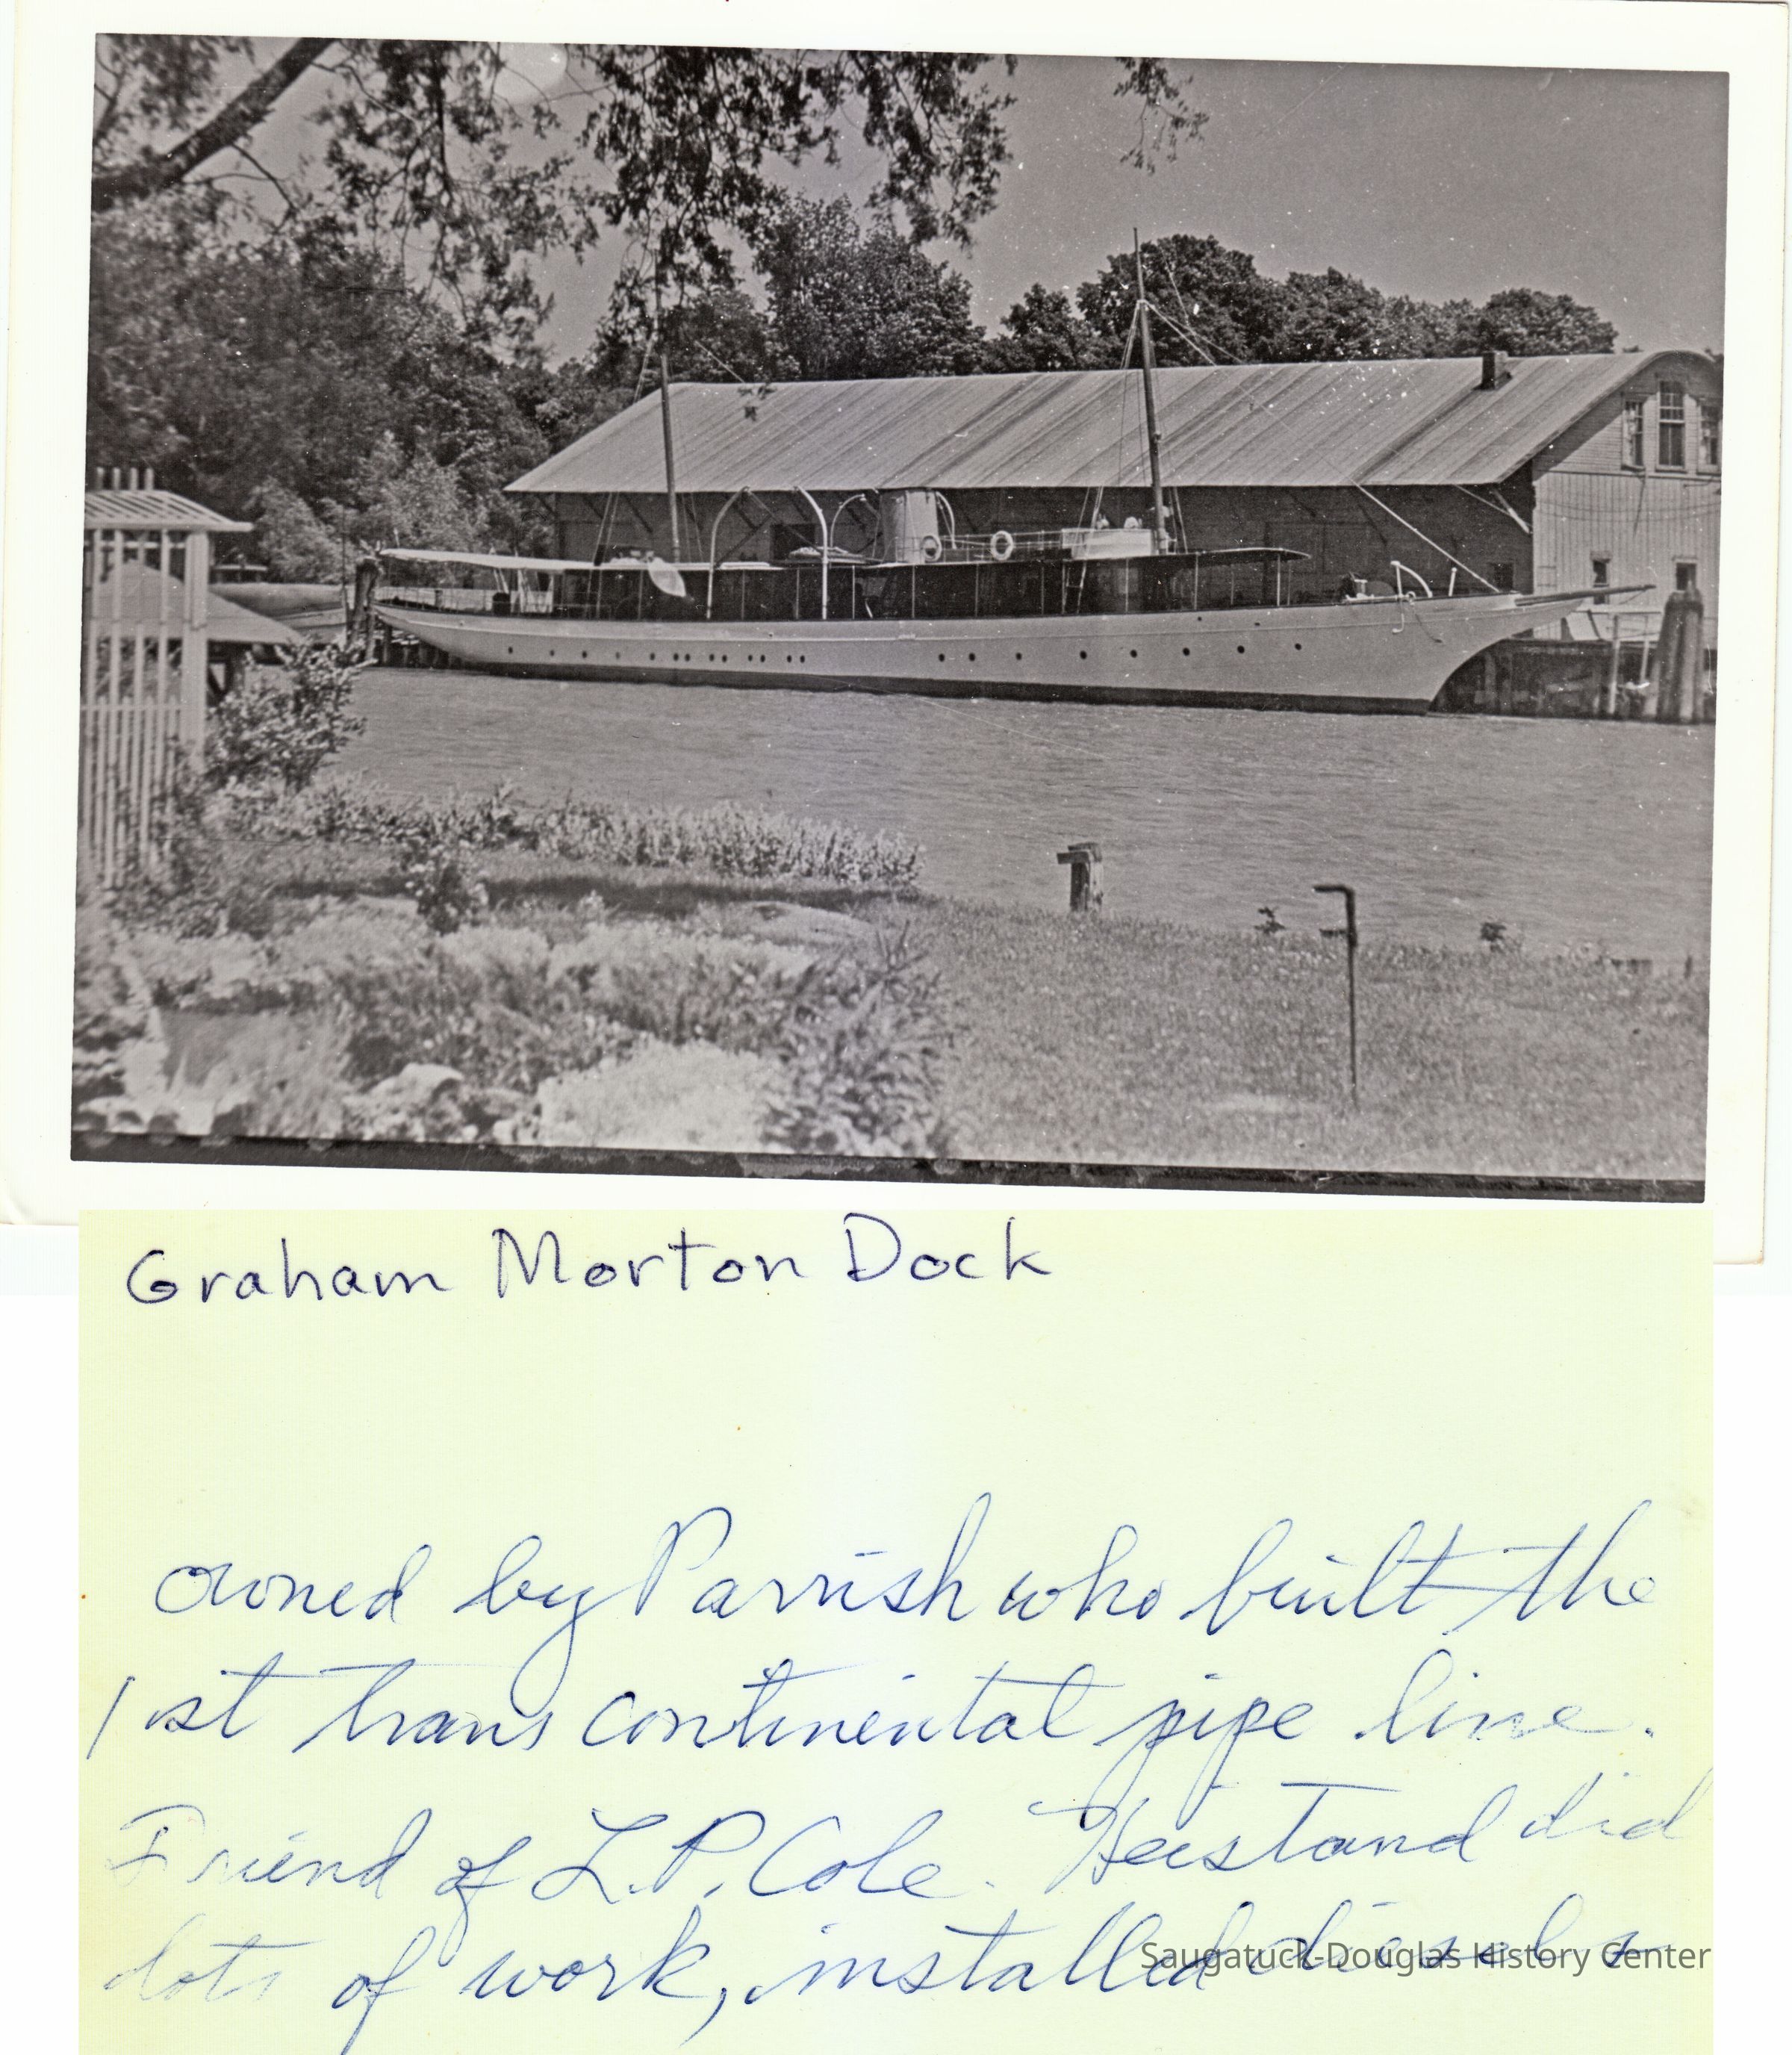 Graham Morton Dock
owned by Parrish who built the
1st trans continental pipe line.
Friend of L.P. Cole. Heistand did
lots of work, installed diesels
Saugatuck-Douglas History Center